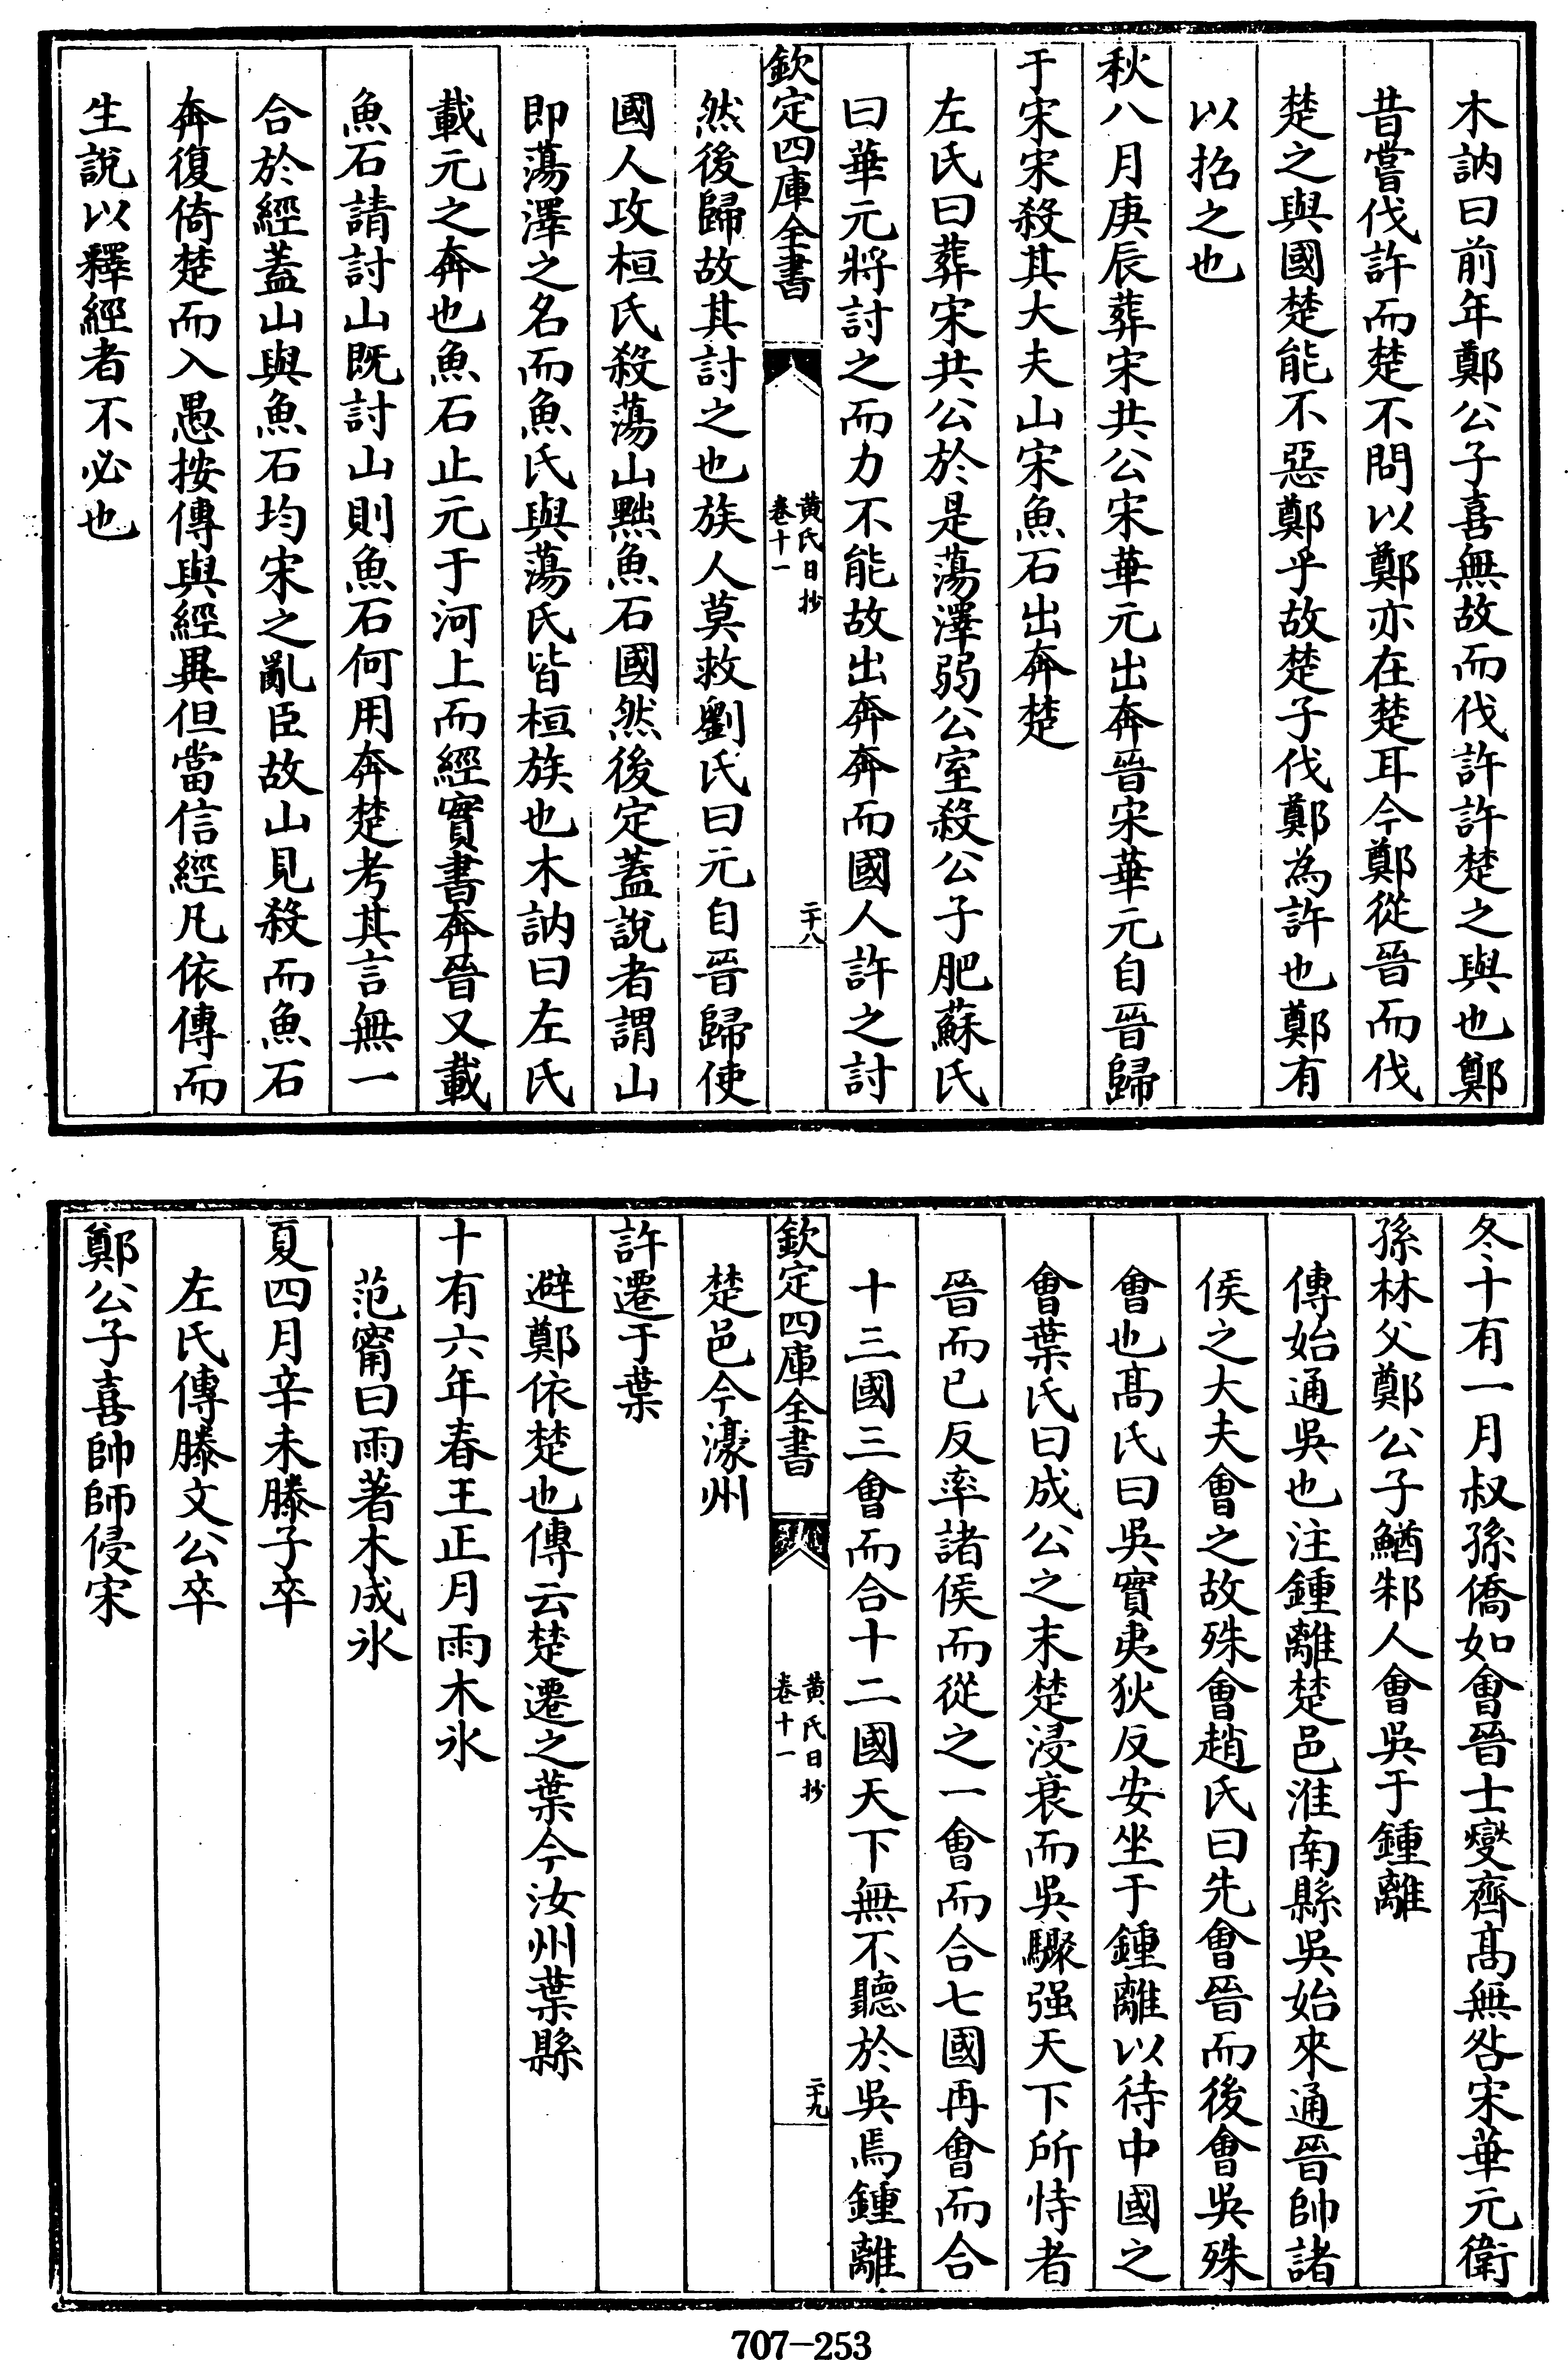 木訥曰前年鄭公子喜無故而伐許許楚之與也鄭
昔嘗伐許而楚不問以鄭亦在楚耳今鄭從晉而伐
楚之與國楚能不惡鄭乎故楚子伐鄭為許也鄭有
以招之也
秋八月庚辰葬宋共公宋華元出奔晉宋華元自晉歸
于宋宋殺其大夫山宋魚石出奔楚
左氏曰葬宋共公於是蕩澤弱公室殺公子肥蘇氏
曰華元將討之而力不能故出奔奔而國人許之討
欽定四庫全書
黄氏日抄
卷十一
二十八
然後歸故其討之也族人莫救劉氏曰元自晉歸使
國人攻桓氏殺蕩山黜魚石國然後定蓋說者謂山
即蕩澤之名而魚氏與蕩氏皆桓族也木訥曰左氏
載元之奔也魚石止元于河上而經實書奔晉又載
魚石請討山既討山則魚石何用奔楚考其言無一
合於經蓋山與魚石均宋之亂臣故山見殺而魚石
奔復倚楚而入愚按傳與經異但當信經凡依傳而
生說以釋經者不必也
冬十有一月叔孫僑如會晉士燮齊髙無咎宋華元衛
孫林父鄭公子鰌邾人會吳于鍾離
傳始通吳也注鍾離楚邑淮南縣吳始來通晉帥諸
侯之大夫會之故殊會趙氏曰先會晉而後會吳殊
會也髙氏曰吳實夷狄反安坐于鍾離以待中國之
會葉氏曰成公之末楚浸衰而吳驟强天下所恃者
晉而已反率諸侯而從之一會而合七國再會而合
十三國三會而合十二國天下無不聽於吳焉鍾離
欽定四庫全書
黄氏日抄
卷十一
二十九
楚邑今濠州
許遷于葉
避鄭依楚也傳云楚遷之葉今汝州葉縣
十有六年春王正月雨木氷
范甯曰雨著木成氷
夏四月辛未滕子卒
左氏傳滕文公卒
鄭公子喜帥師侵宋
707-253